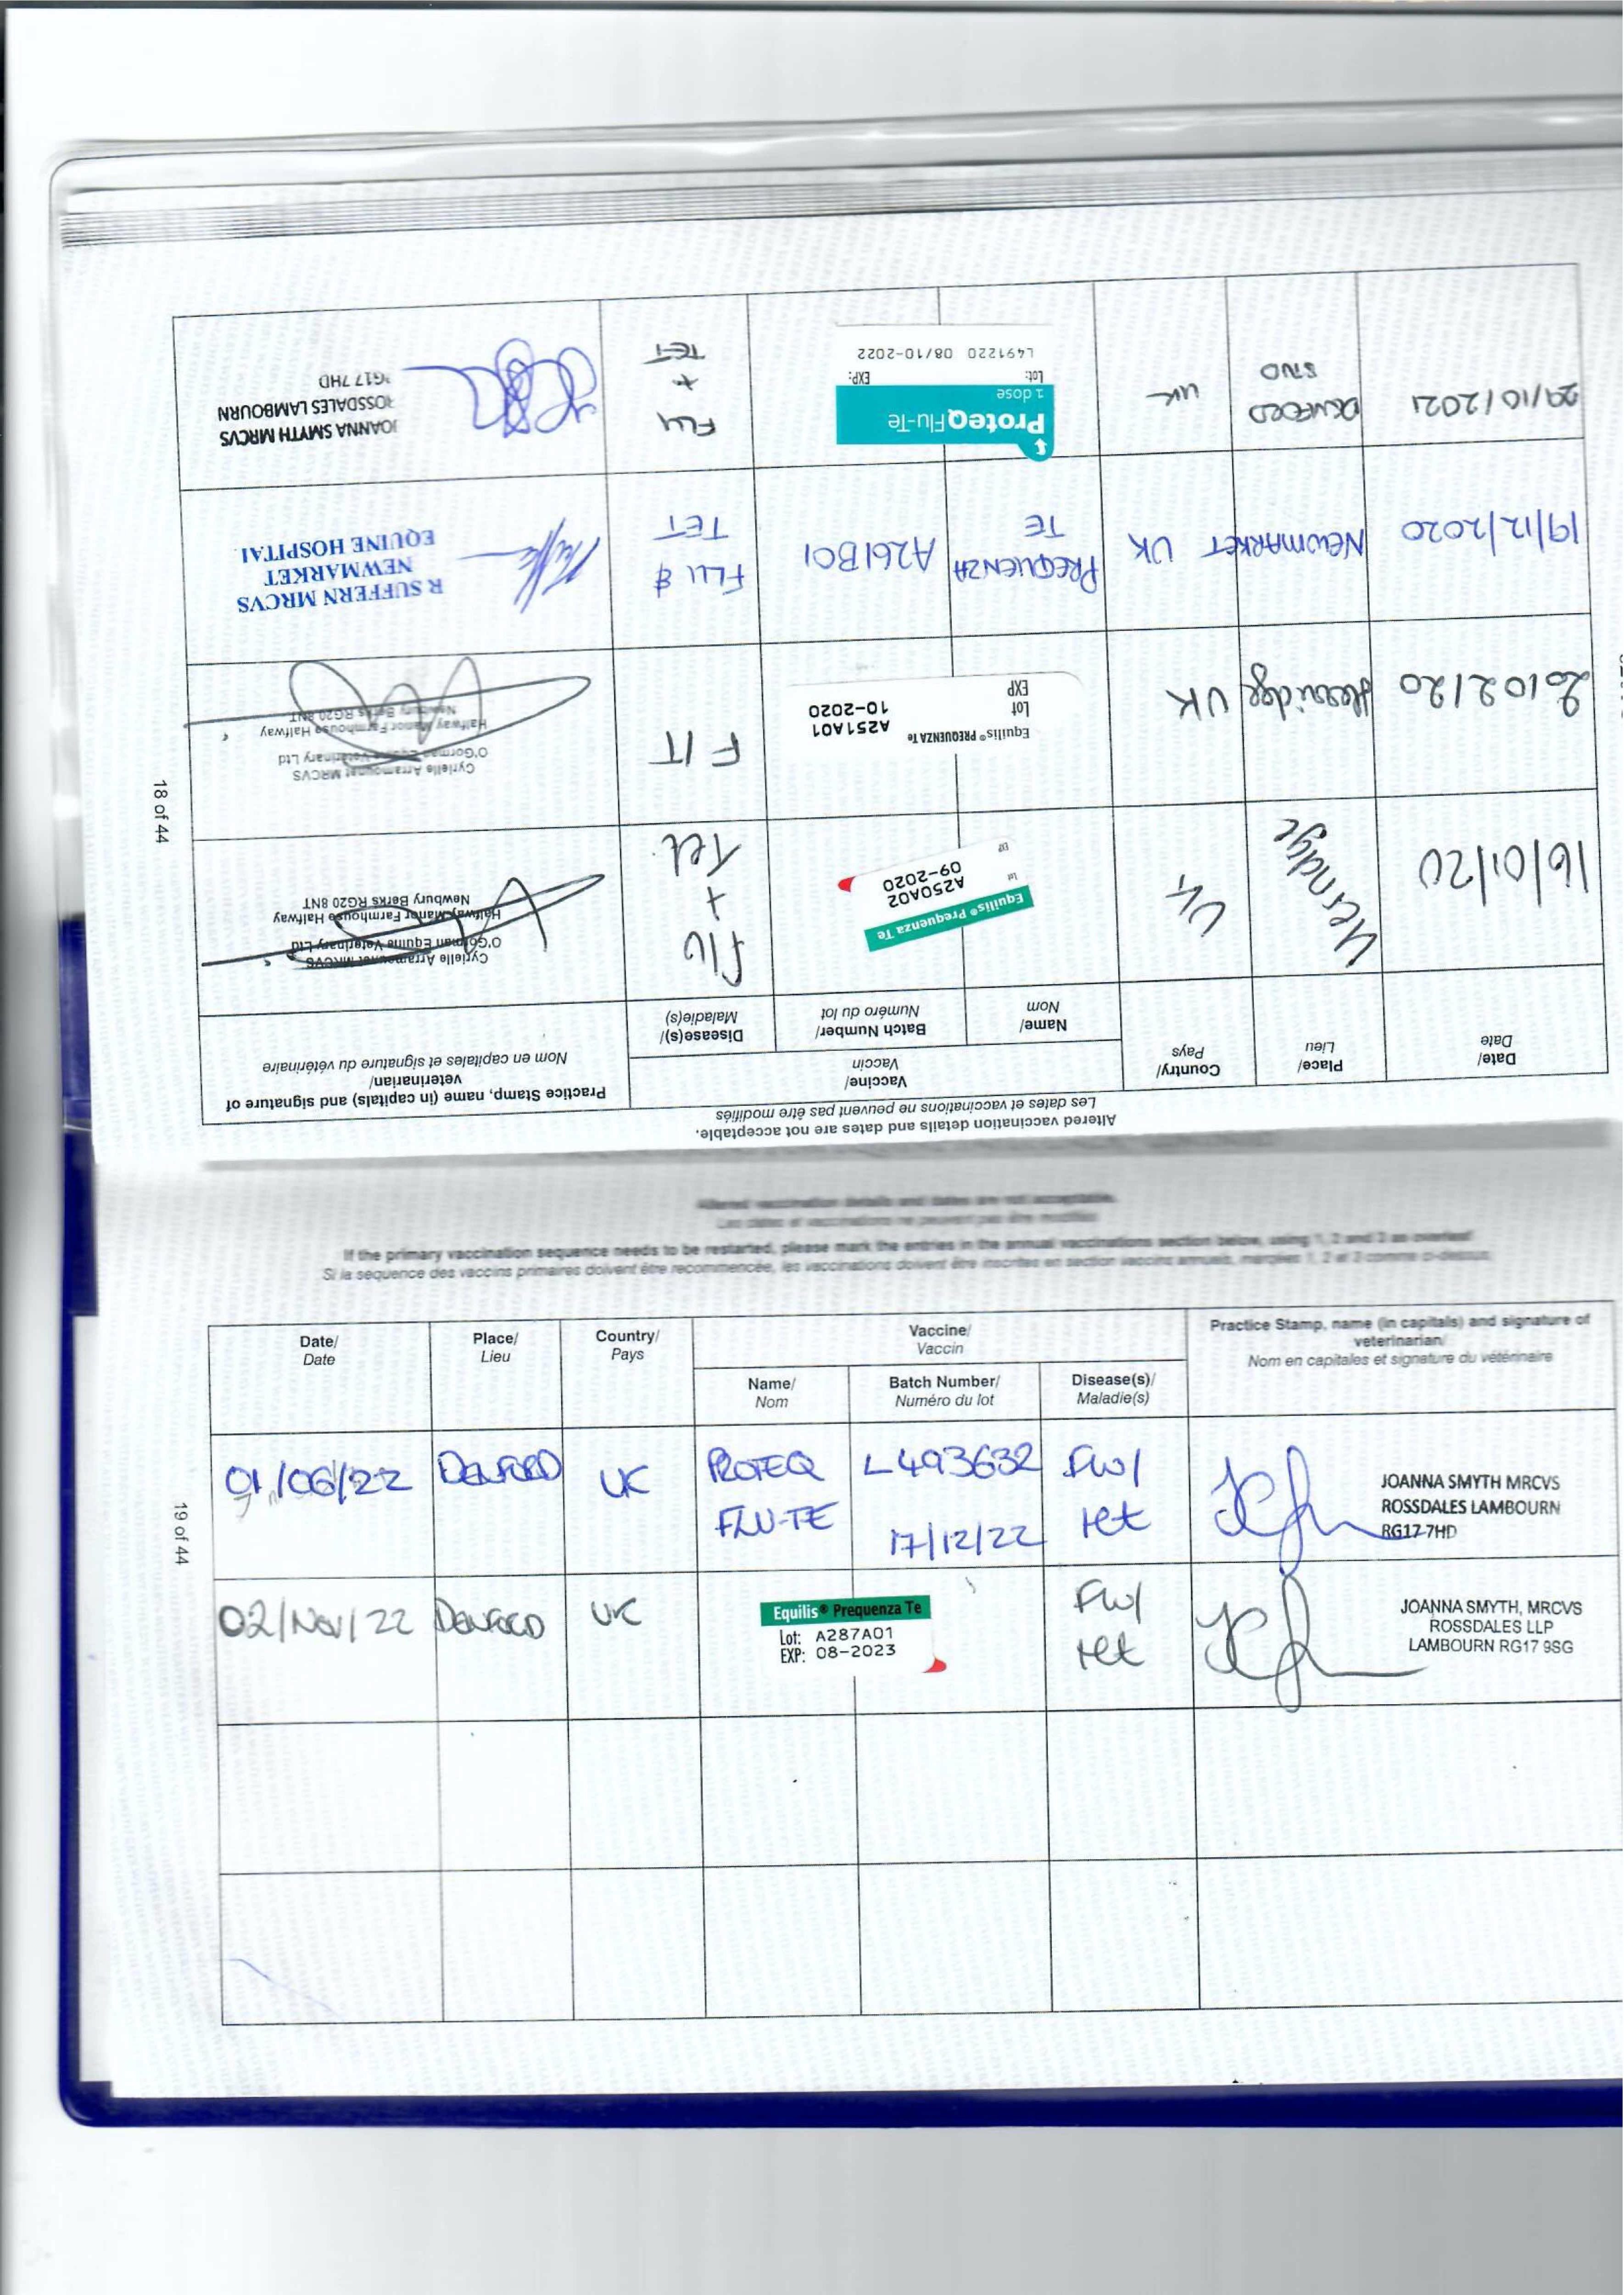 Altered vaccination details and dates are not acceptable.
Les dates et vaccinations ne peuvent pas être modifiés
Date/
Date
Place/
Lieu
Country/
Pays
Vaccine/
Vaccin
Name/
Nom
Batch Number/
Numéro du lot
Disease(s)/
Maladie(s)
Practice Stamp, name (in capitals) and signature of
veterinarian/
Nom en capitales et signature du vétérinaire
16/01/20
UK
Equilis® Prequenza Te
Lot
A250A02
EXP
09-2020
Flu
+
Tet.
Cyrielle Arramounet MRCVS
O'Gorman Equine Veterinary Ltd
Halfway Manor Farmhouse Halfway
Newbury Berks RG20 8NT
20/02/20
UK
Equilis® PREQUENZA Te
Lot
A251A01
EXP
10-2020
F/T
Cyrielle Arramounet MRCVS
O'Gorman Equine Veterinary Ltd
Halfway Manor Farmhouse Halfway
Newbury Berks RG20 8NT
19/12/2020
NEWMARKET
UK
PREQUENZA
TE
A261B01
FLU &
TET
R SUFFERN MRCVS
NEWMARKET
EQUINE HOSPITAL
29/10/2021
DENFORD
STUD
UK
ProteqFlu-Te
1 dose
Lot: EXP:
L491220 08/10-2022
FLU
+
TET
JOANNA SMYTH MRCVS
ROSSDALES LAMBOURN
RG17 7HD
18 of 44
Altered vaccination details and dates are not acceptable.
Les dates et vaccinations ne peuvent pas être modifiés
If the primary vaccination sequence needs to be restarted, please mark the entries in the annual vaccinations section below, using 1, 2 and 3 as overleaf
Si la sequence des vaccins primaires doivent être recommencée, les vaccinations doivent être inscrites en section vaccins annuels, marqées 1, 2 et 3 comme ci-dessus
Date/
Date
Place/
Lieu
Country/
Pays
Vaccine/
Vaccin
Name/
Nom
Batch Number/
Numéro du lot
Disease(s)/
Maladie(s)
Practice Stamp, name (in capitals) and signature of
veterinarian/
Nom en capitales et signature du vétérinaire
01/06/22
DENFORD
UK
PROTEQ
FLU-TE
L493632
17/12/22
Flu/
tet
JOANNA SMYTH MRCVS
ROSSDALES LAMBOURN
RG17 7HD
02/Nov/22
DENFORD
UK
Equilis® Prequenza Te
Lot: A287A01
EXP: 08-2023
Flu/
tet
JOANNA SMYTH, MRCVS
ROSSDALES LLP
LAMBOURN RG17 9SG
19 of 44